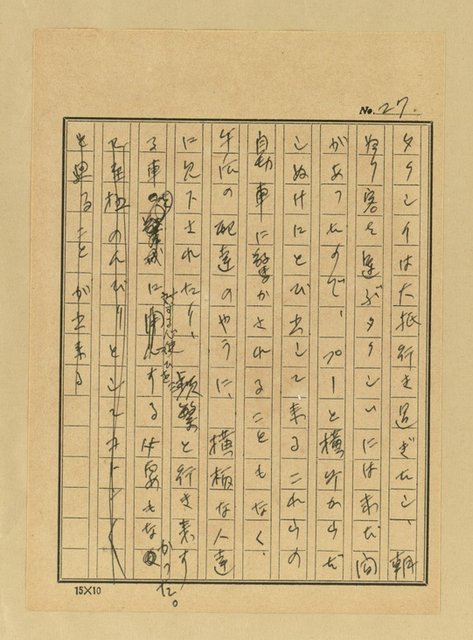 No. 27.
タクシイは大抵行き過ぎたし、朝
帰り客を運ぶタクシイには未だ間
があつたので、プーと横町からだ
しぬけにとび出して来るこれらの
自動車に驚かされることもなく、
牛乳の配達のやうに、横柄な人達
に見下されたり、頻繁と行き来す
る車に対する心使ひを する必要もな
かつた。
のんびりとして
と思ることが出来る
15×10